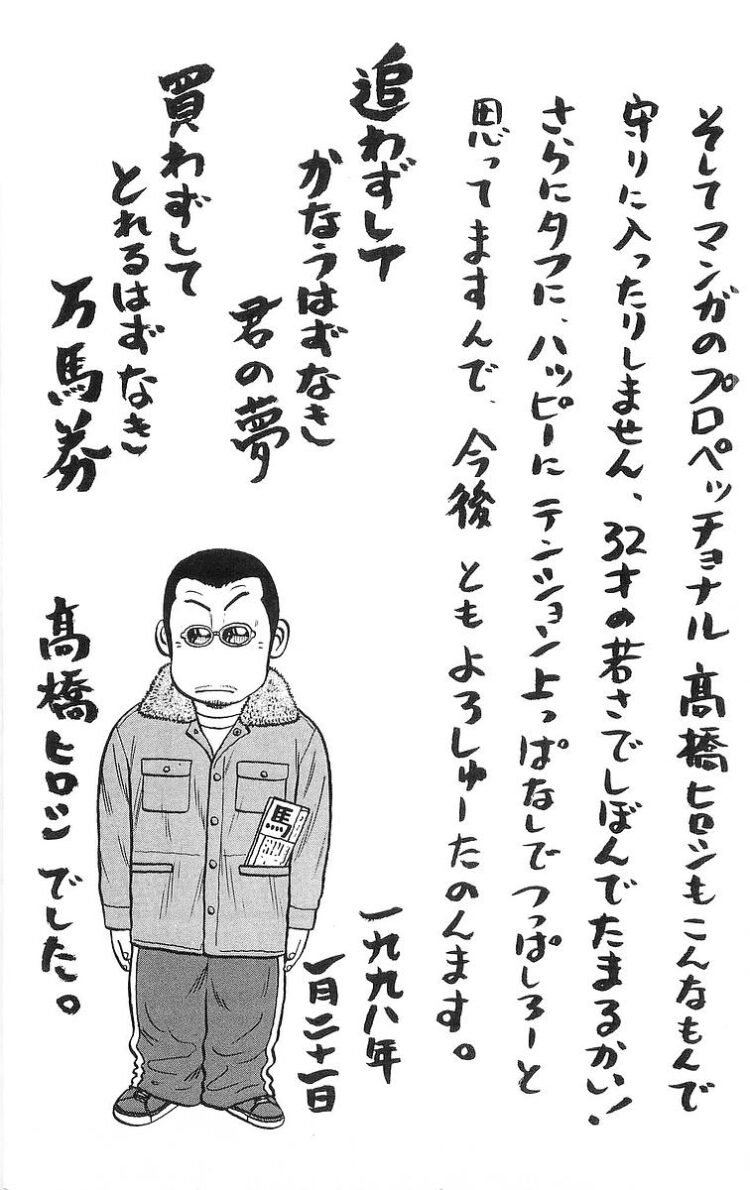 そしてマンガのプロペッチョナル髙橋ヒロシもこんなもんで
守りに入ったりしません、32才の若さでしぼんでたまるかい！
さらにタフに、ハッピーにテンション上っぱなしでつっぱしろーと
思ってますんで、今後ともよろしゅーたのんます。
追わずして
かなうはずなき
君の夢
買わずして
とれるはずなき
万馬券
一九九八年
一月二十一日
馬
髙橋ヒロシでした。